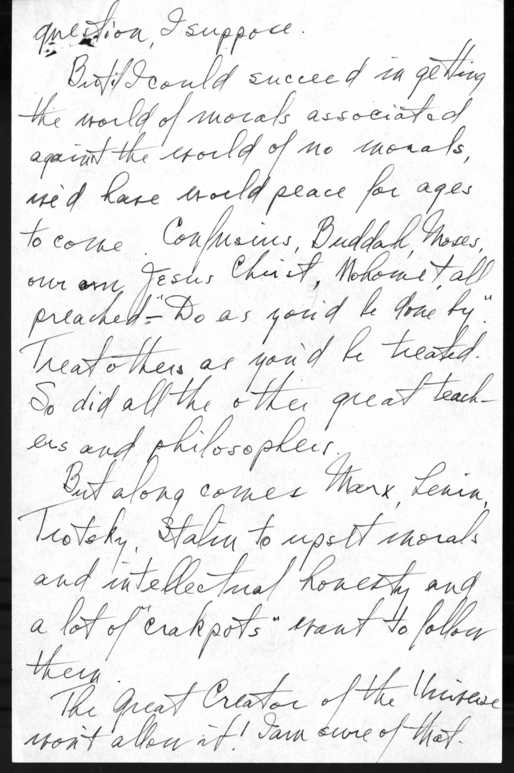 question, I suppose.
But if I could succeed in getting
the world of morals associated
against the world of no morals,
we'd have world peace for ages
to come. Confusius, Buddah, Moses,
our own Jesus Christ, Mohomet, all
preached - "Do as you'd be done by".
Treat others as you'd be treated.
So did all the other great teach-
ers and philosophers.
But along comes Marx, Lenin,
Trotsky, Stalin to upset morals
and intellectual honesty and
a lot of "crakpots" want to follow
them.
The Great Creator of the Universe
won't allow it! I am sure of that.